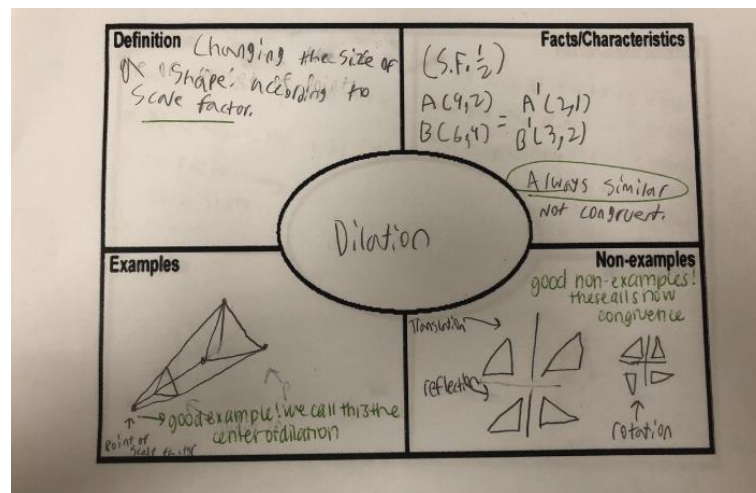 Definition Changing the size of
a shape. according to
Scale factor.
Facts/Characteristics
(S.F. 1/2)
A(4,2) A'(2,1)
B(6,4) = B'(3,2)
Always similar
not congruent.
Dilation
Examples
good example! we call this the
center of dilation
Point of
Scale factor
Non-examples
good non-examples!
these all show
congruence
Translation
reflection
rotation